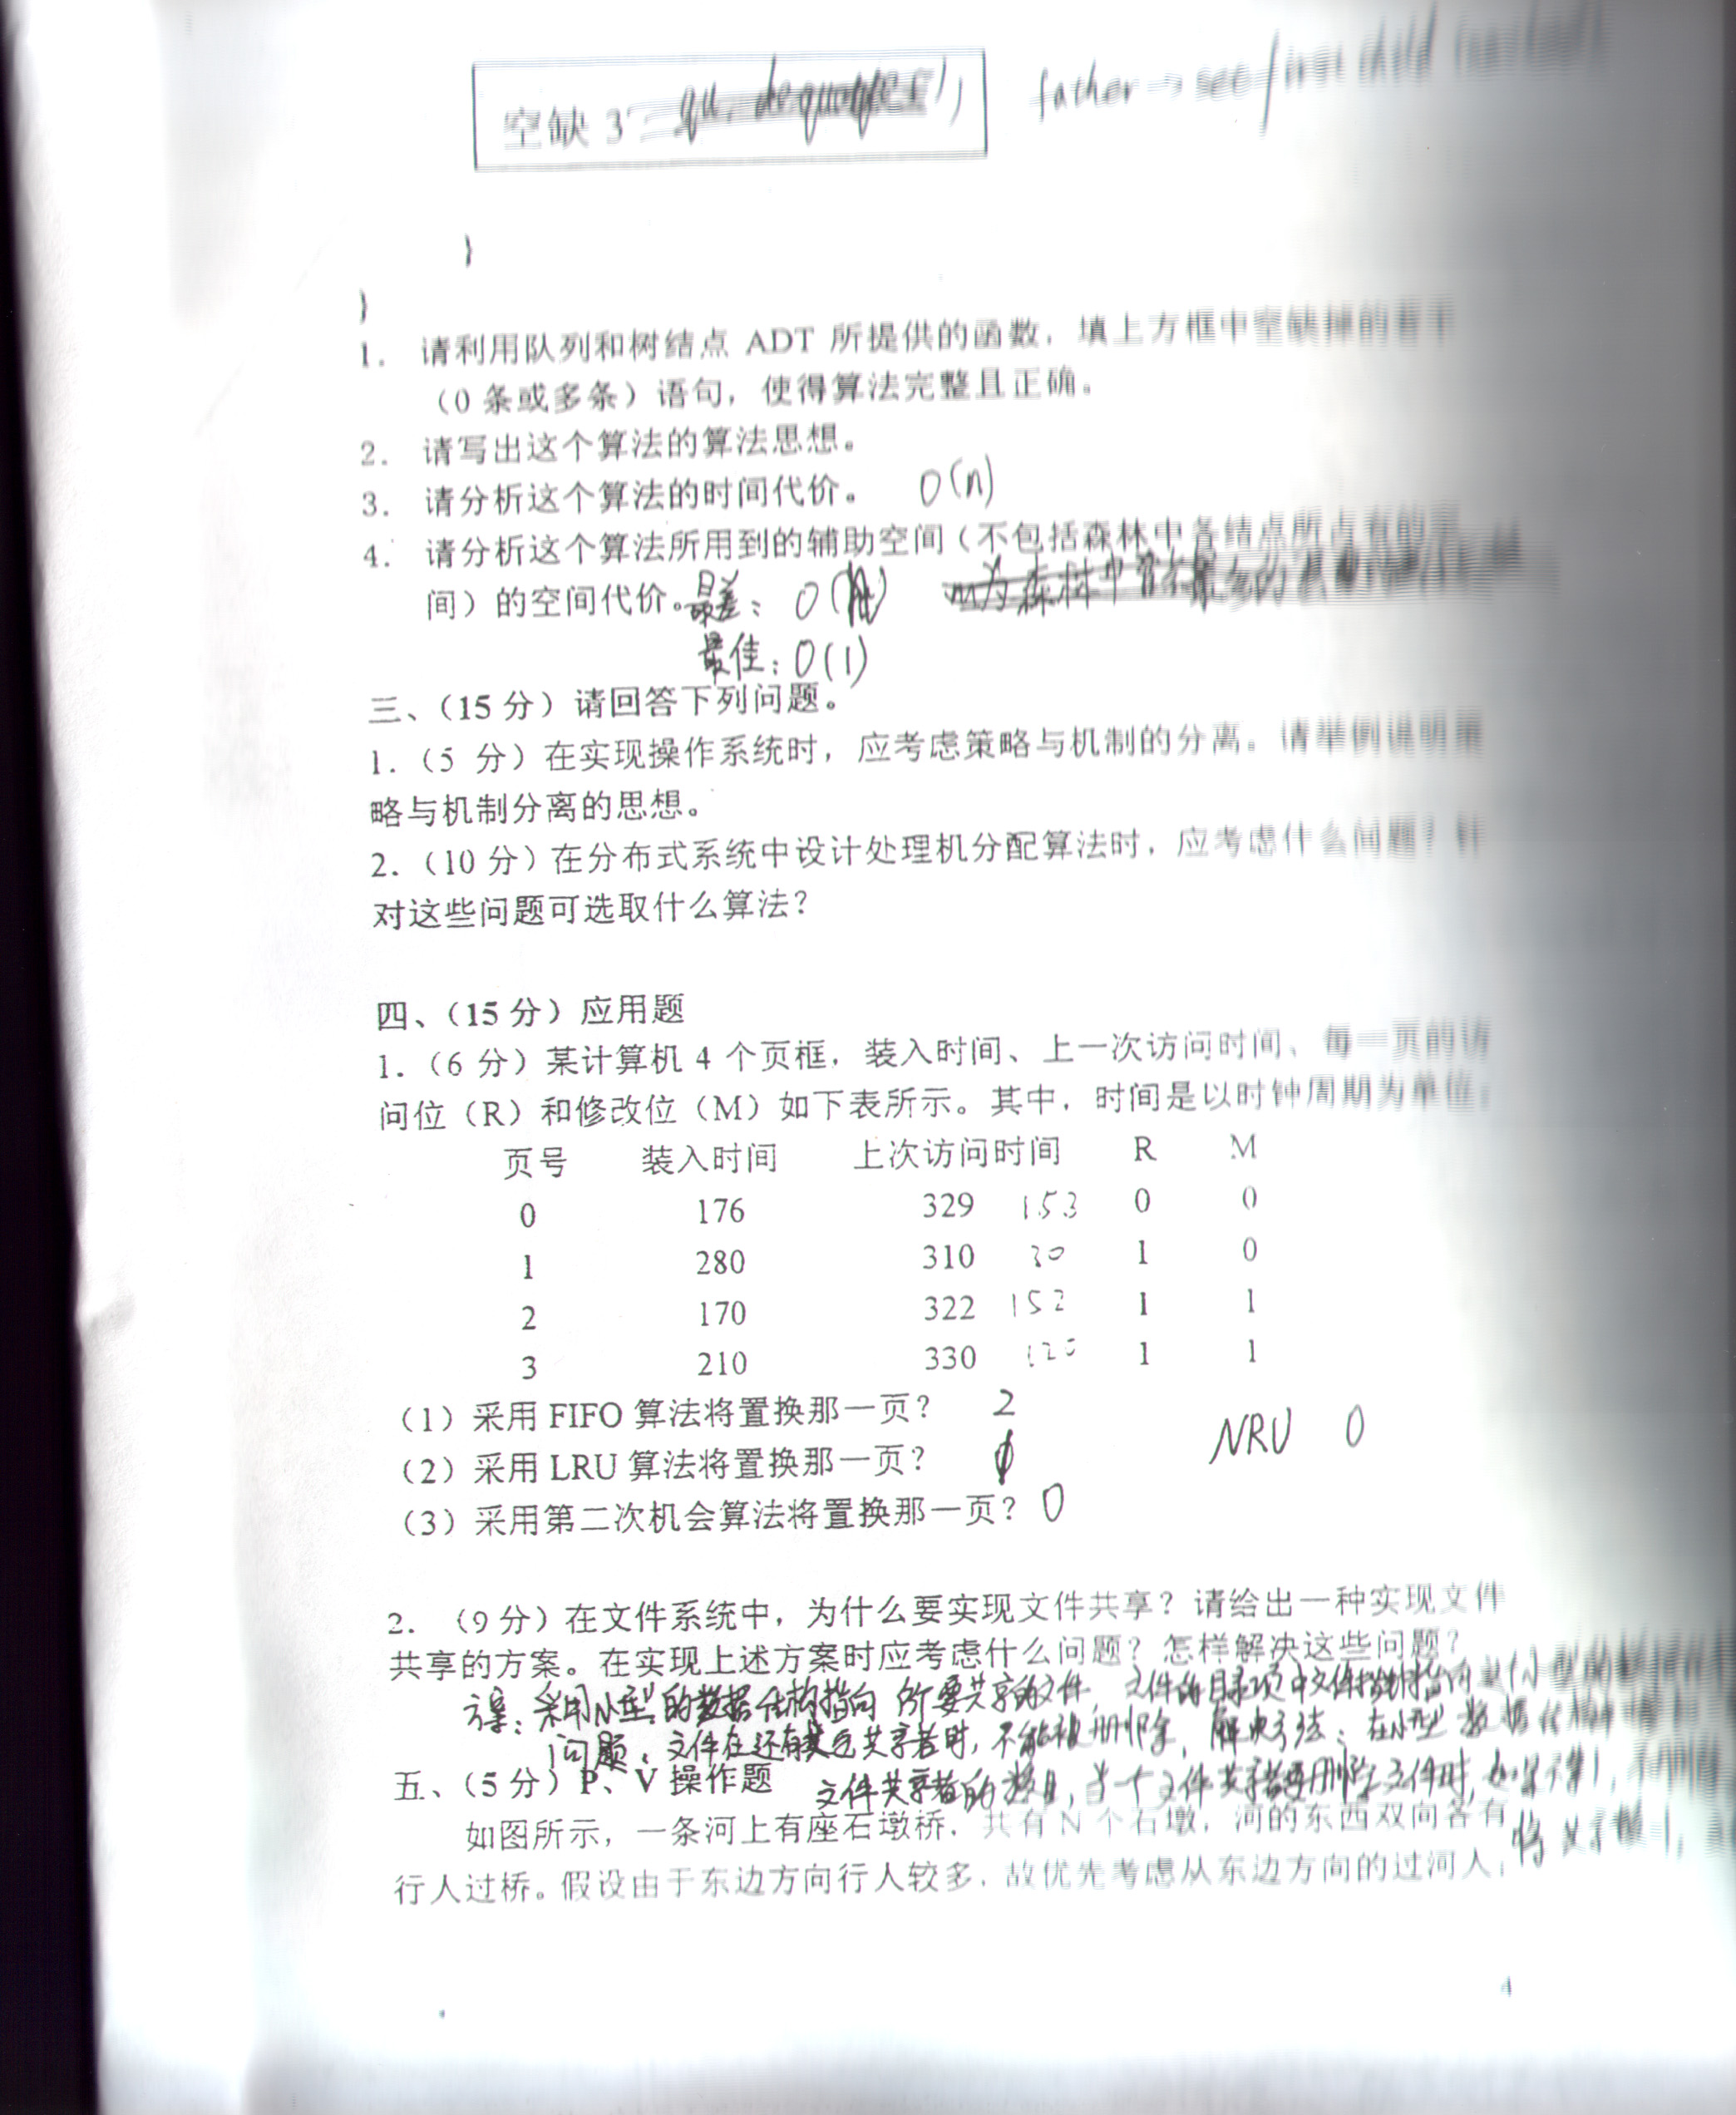 空缺 3:
father → see first child
}
}
1. 请利用队列和树结点 ADT 所提供的函数，填上方框中空缺掉的若干
（0 条或多条）语句，使得算法完整且正确。
2. 请写出这个算法的算法思想。
3. 请分析这个算法的时间代价。 O(n)
4. 请分析这个算法所用到的辅助空间（不包括森林中各结点所占有的
间）的空间代价。最差：O(n)
最佳：O(1)
三、（15 分）请回答下列问题。
1.（5 分）在实现操作系统时，应考虑策略与机制的分离。请举例说明策
略与机制分离的思想。
2.（10 分）在分布式系统中设计处理机分配算法时，应考虑什么问题？针
对这些问题可选取什么算法？
四、（15 分）应用题
1.（6 分）某计算机 4 个页框，装入时间、上一次访问时间、每一页的访
问位（R）和修改位（M）如下表所示。其中，时间是以时钟周期为单位：
页号 装入时间 上次访问时间 R M
0 176 329 153 0 0
1 280 310 30 1 0
2 170 322 152 1 1
3 210 330 120 1 1
（1）采用 FIFO 算法将置换那一页？ 2
（2）采用 LRU 算法将置换那一页？ NRU 0
（3）采用第二次机会算法将置换那一页？ 0
2. （9 分）在文件系统中，为什么要实现文件共享？请给出一种实现文件
共享的方案。在实现上述方案时应考虑什么问题？怎样解决这些问题？
方案：采用N型的数据结构指向所要共享的文件，文件的目录项中文件指针指向
问题：文件在还有其它共享者时，不能被删除，解决方法：在N型数据结构
五、（5 分）P、V 操作题
文件共享者的数目，当一个文件共享者要删除文件时，
如图所示，一条河上有座石墩桥，共有 N 个石墩，河的东西双向各有
行人过桥。假设由于东边方向行人较多，故优先考虑从东边方向的过河人；
4